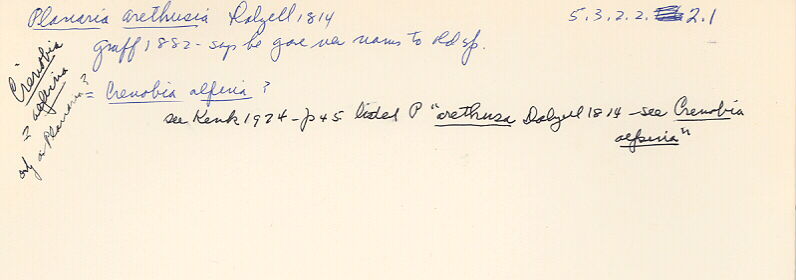 Planaria arethusia Dalyell 1814 5.3.2.2. 2.1
Graff 1882 - says he gave new names to old sp.
= Crenobia alpina ?
see Kenk 1974 - p 45 listed P "arethusa Dalyell 1814 - see Crenobia
alpina"
"Crenobia
= alpina
only a Planaria?